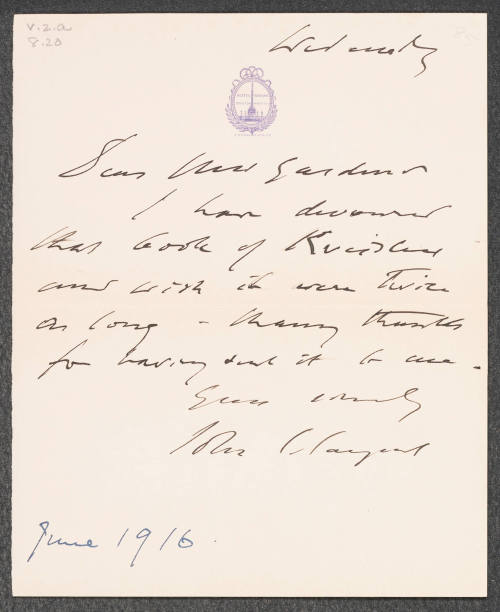 v.2.a
8.20
Wednesday
Dear Mrs Gardner
I have devoured
that book of Kreisler
and wish it were twice
as long – many thanks
for having sent it to me.
Yours sincerely
John S. Sargent
June 1916.